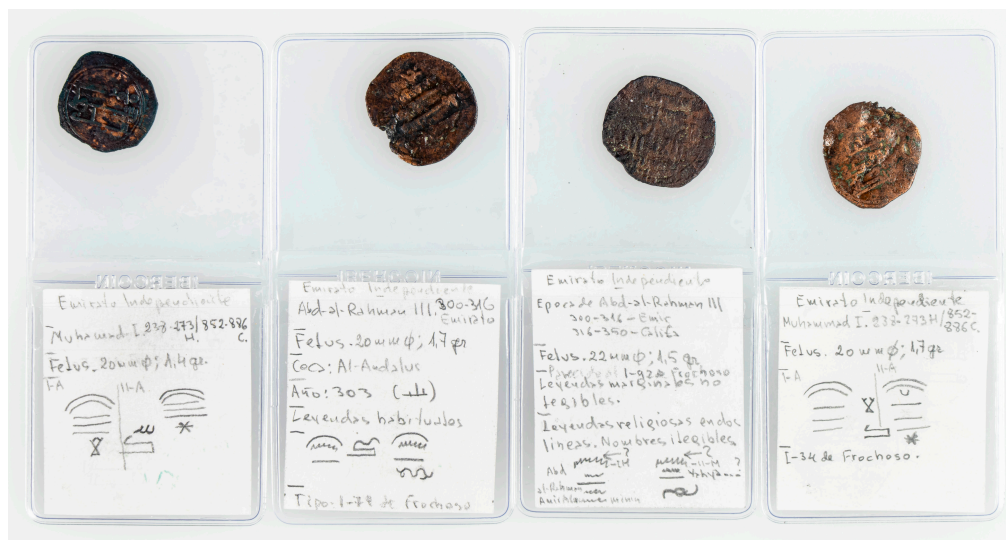 IBERCOIN
Emirato Independiente
Muhamad I. 238-273/852-886
H. C.
Felus. 20mmϕ; 1,4 gr.
I-A II-A
IBERCOIN
Emirato Independiente
Abd-al-Rahman III: 300-316
Emirato
Felus. 20mmϕ; 1,7 gr
Ceca: Al-Andalus
Año: 303
Leyendas habituales
Tipo: I-74 de Frochoso
IBERCOIN
Emirato Independiente
Epoca de Abd-al-Rahman III
300-316 - Emir
316-350 - Califa
Felus. 22mmϕ; 1,5 gr
Frochoso
Leyendas marginales no
legibles.
Leyendas religiosas en dos
lineas. Nombres ilegibles
?
?
Abd
al-Rahman
IBERCOIN
Emirato Independiente
Muhammad I. 238-273H/852-
886C.
Felus. 20mmϕ; 1,7gr
I-A II-A
I-34 de Frochoso.